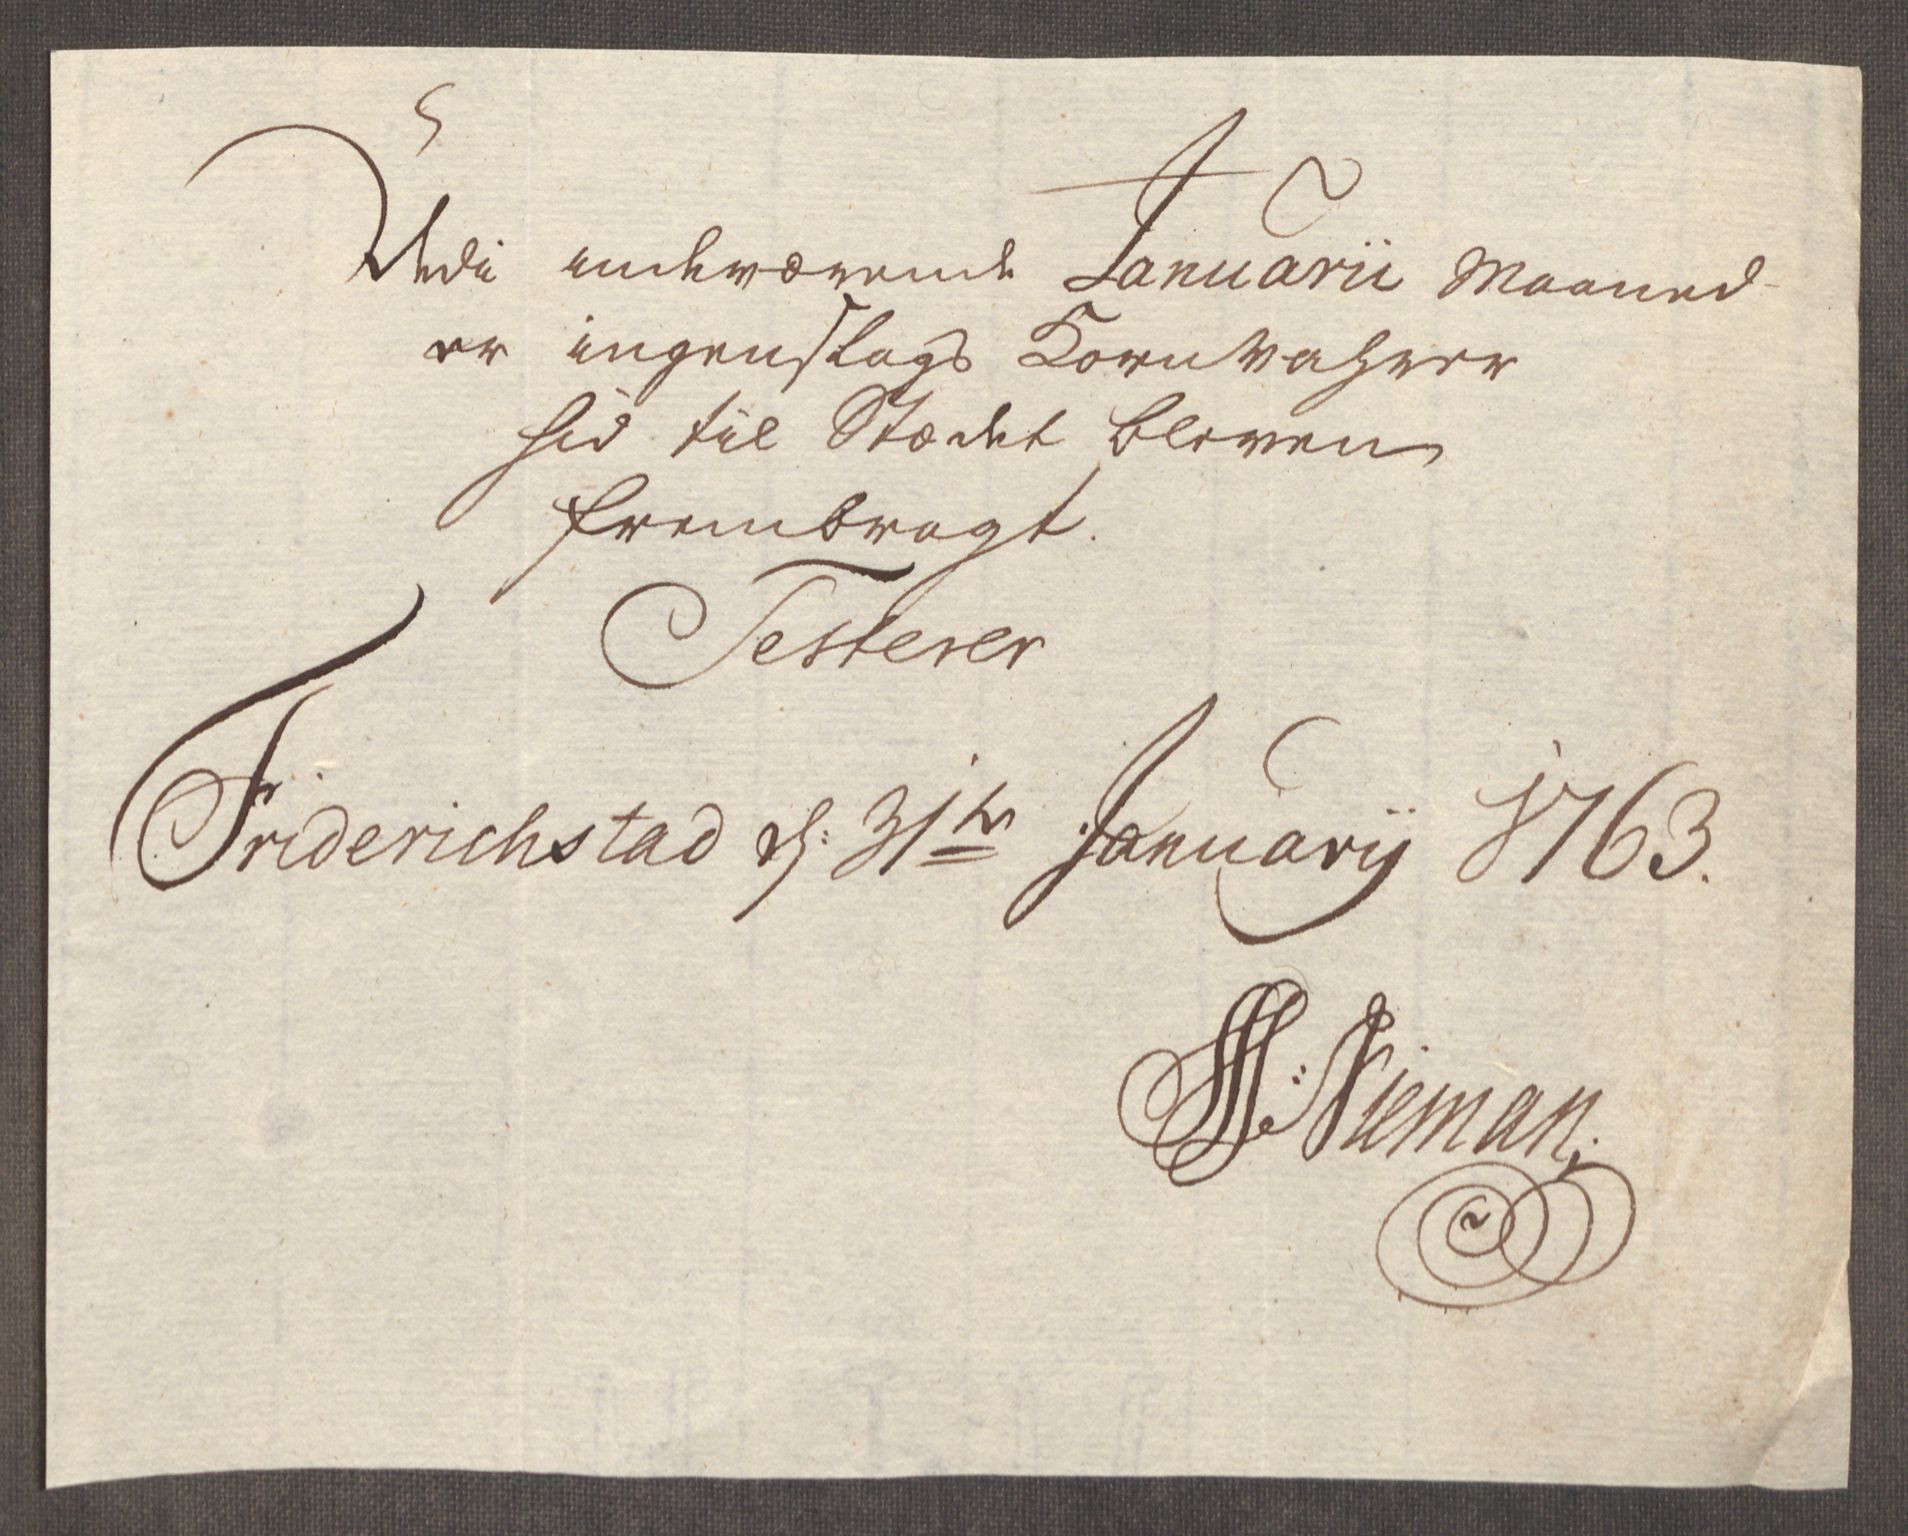 Udi indeværende Januarii Maaned
er ingenslags Kornvahrer
hid til Stædet bleven
frembragt.
Testerer
Friderichstad d: 31te Januarij 1763.
H: Nieman.